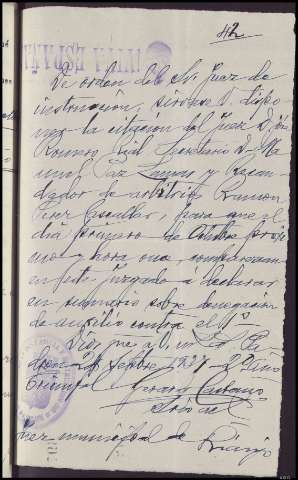 42
De orden del Sr. Juez de
instrucción, sirvase V. dispo-
ner la citación del Juez D. José
Romero Rial, Secretario D. Ma
nuel Paz Lamas y Recau
dador de arbitrios Ramon
Pérez Escultor, para que el
dia primero de Octubre próxi
mo y hora once, comparezcan
en este juzgado a declarar
en sumario sobre denegación
de auxilio contra el 1º
Dios gue a V. m. a.
24 Septbre 1937 2º Año
Triunfal
Juez municipal de Rianjo